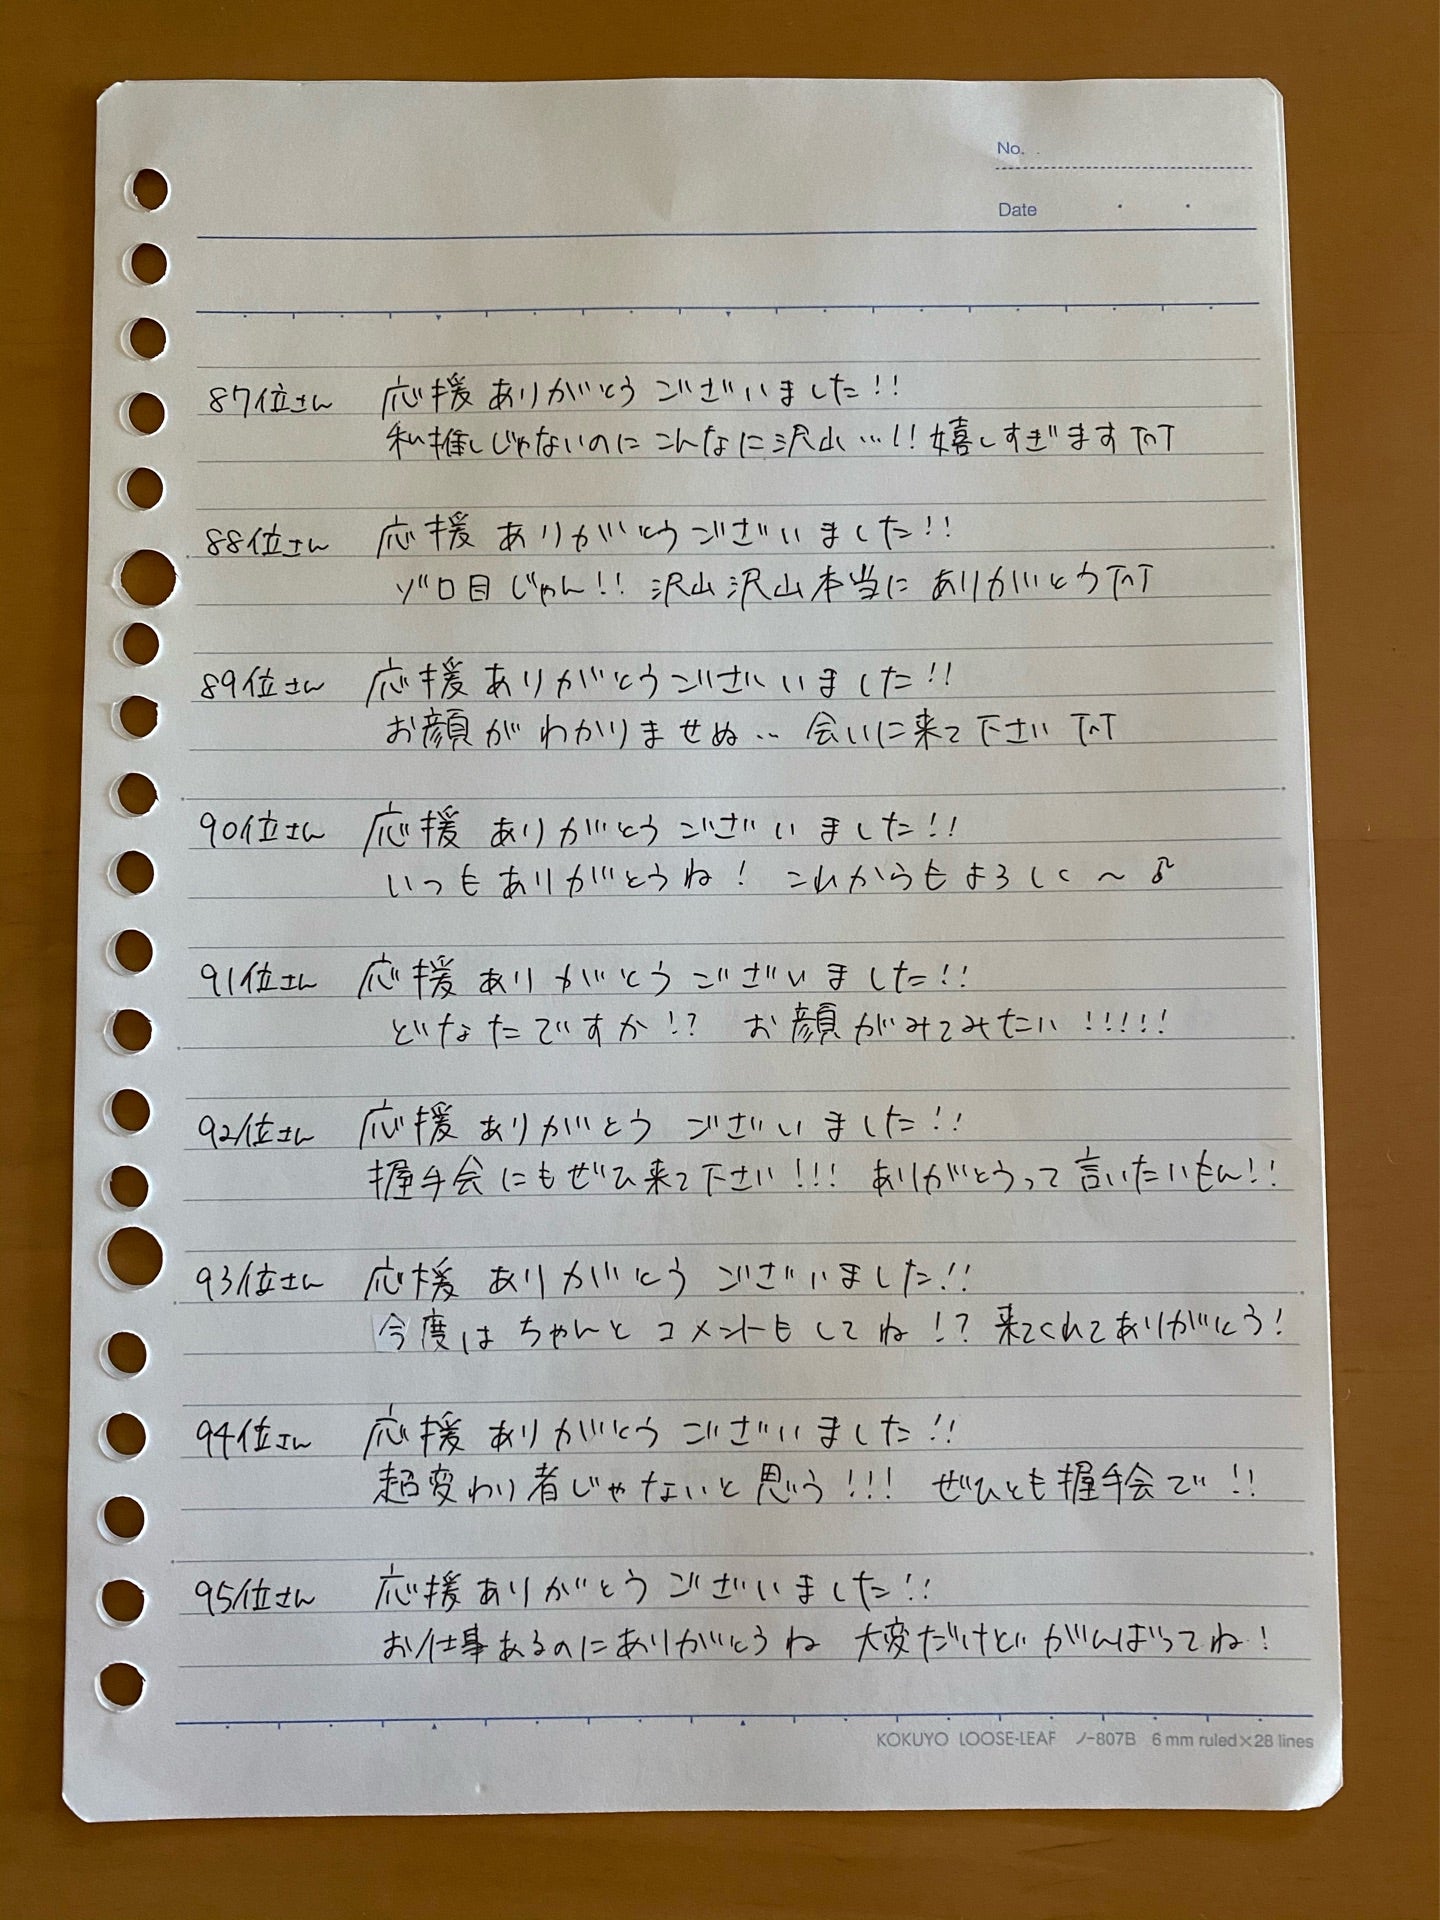 No.
Date
87位さん 応援ありがとうございました!!
私推しじゃないのにこんなに沢山…!!嬉しすぎますT^T
88位さん 応援ありがとうございました!!
ゾロ目じゃん!!沢山沢山本当にありがとうT^T
89位さん 応援ありがとうございました!!
お顔がわかりませぬ‥会いに来て下さいT^T
90位さん 応援ありがとうございました!!
いつもありがとうね!これからもよろしく〜♪
91位さん 応援ありがとうございました!!
どなたですか!?お顔がみてみたい!!!!!
92位さん 応援ありがとうございました!!
握手会にもぜひ来て下さい!!!ありがとうって言いたいもん!!
93位さん 応援ありがとうございました!!
今度はちゃんとコメントもしてね!?来てくれてありがとう!
94位さん 応援ありがとうございました!!
超変わり者じゃないと思う!!!ぜひとも握手会で!!
95位さん 応援ありがとうございました!!
お仕事あるのにありがとうね 大変だけどがんばってね!
KOKUYO LOOSE-LEAF ノ-807B 6mm ruled×28 lines